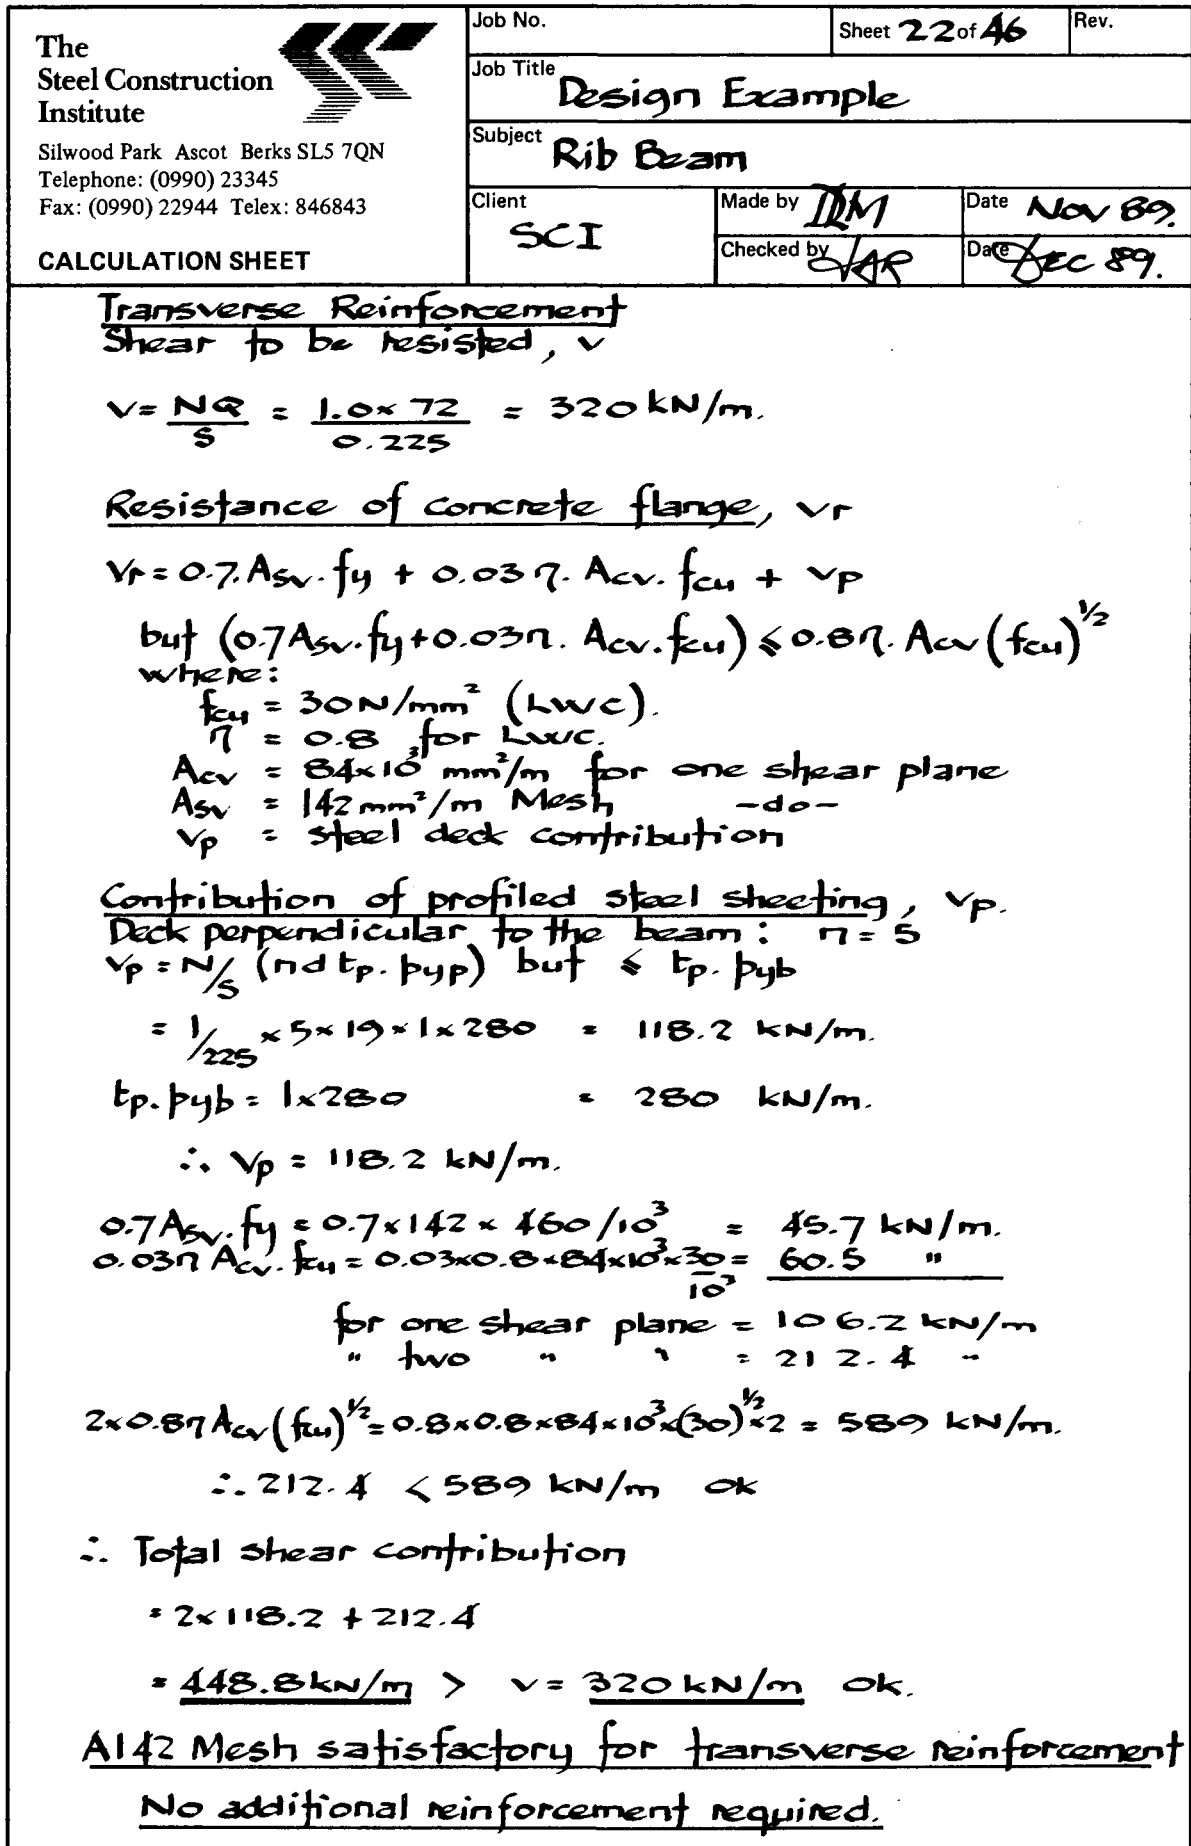 The
Steel Construction
Institute
Silwood Park Ascot Berks SL5 7QN
Telephone: (0990) 23345
Fax: (0990) 22944 Telex: 846843
CALCULATION SHEET
Job No.
Sheet 22 of 46
Rev.
Job Title Design Example
Subject Rib Beam
Client SCI
Made by
Date Nov 89.
Checked by
Date Dec 89.
Transverse Reinforcement
Shear to be resisted, v
v = NQ/S = 1.0 × 72/0.225 = 320 kN/m.
Resistance of concrete flange, vr
Vr = 0.7. Asv. fy + 0.03 η. Acv. fcu + vp
but (0.7 Asv. fy + 0.03η. Acv. fcu) ≤ 0.8η. Acv (fcu)^1/2
where:
fcu = 30 N/mm² (LWC).
η = 0.8 for LWC.
Acv = 84×10³ mm²/m for one shear plane
Asv = 142 mm²/m Mesh -do-
vp = steel deck contribution
Contribution of profiled steel sheeting, vp.
Deck perpendicular to the beam: n = 5
vp = N/S (nd tp. pyp) but ≤ tp. pyb
= 1/225 × 5 × 19 × 1 × 280 = 118.2 kN/m.
tp. pyb = 1×280 = 280 kN/m.
∴ Vp = 118.2 kN/m.
0.7 Asv. fy = 0.7 × 142 × 460/10³ = 45.7 kN/m.
0.03η Acv. fcu = 0.03×0.8×84×10³×30/10³ = 60.5 "
for one shear plane = 106.2 kN/m
" two " " = 212.4 "
2×0.8η Acv (fcu)^1/2 = 0.8×0.8×84×10³×(30)^1/2×2 = 589 kN/m.
∴ 212.4 < 589 kN/m ok
∴ Total shear contribution
= 2×118.2 + 212.4
= 448.8 kN/m > v = 320 kN/m ok.
A142 Mesh satisfactory for transverse reinforcement
No additional reinforcement required.